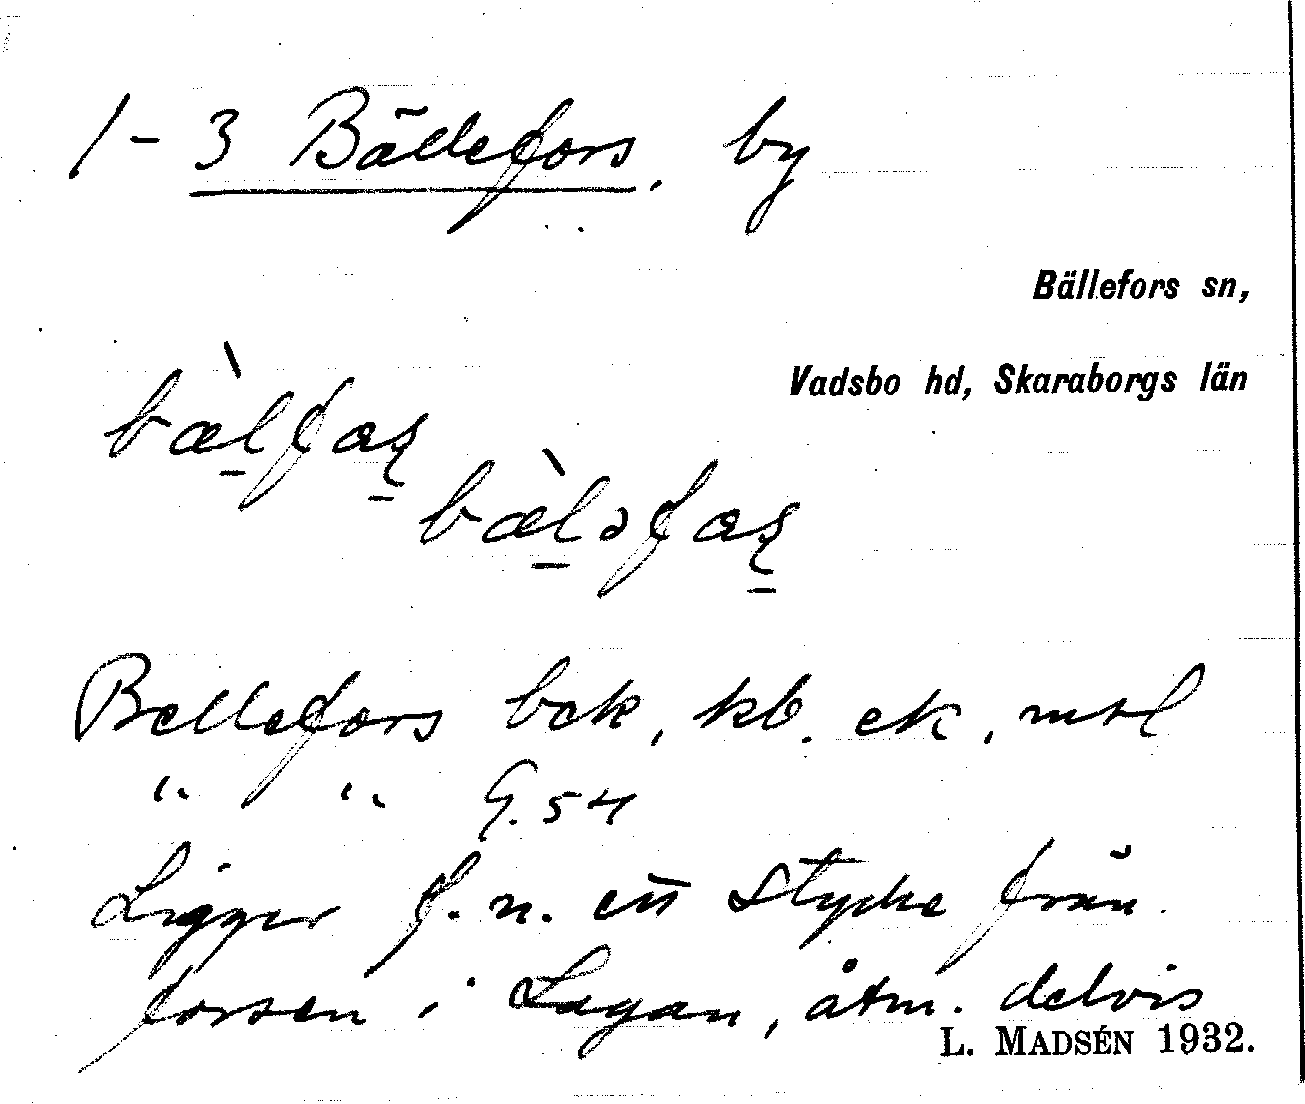 1-3 Bällefors, by
Bällefors sn,
Vadsbo hd, Skaraborgs län
bæ̀l̠faʂ̠
bæ̀l̠əfaʂ̠
Bellefors bek, kb. ek, mtl
" " G. 54
Ligger f. n. ett stycke från
forsen i Lagan, åtm. delvis
L. MADSÉN 1932.